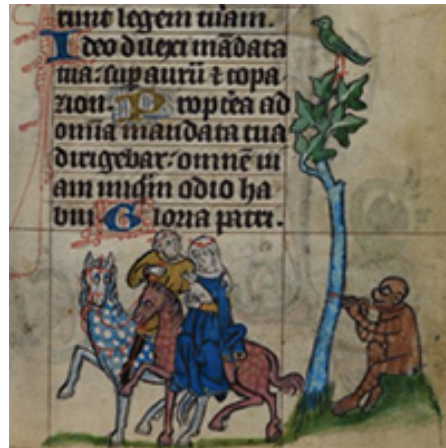 runt legem tuam.
Ideo dilexi mādata
tua: sup aurū ⁊ topa
zion. Proptea ad
omīa mandata tua
dirigebar: omnē ui
am iniqm odio ha
bui. Gloria patri.